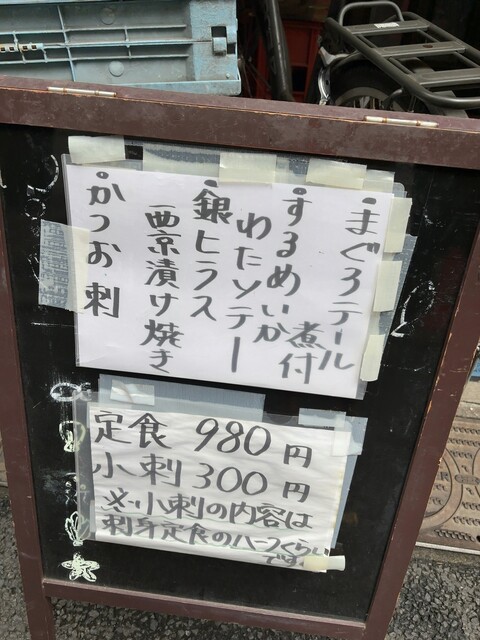 ・まぐろテール
煮付
・するめいか
わたソテー
・銀ヒラス
西京漬け焼き
・かつお刺
定食 980円
小刺 300円
※小刺の内容は
刺身定食のハーフくらい
です